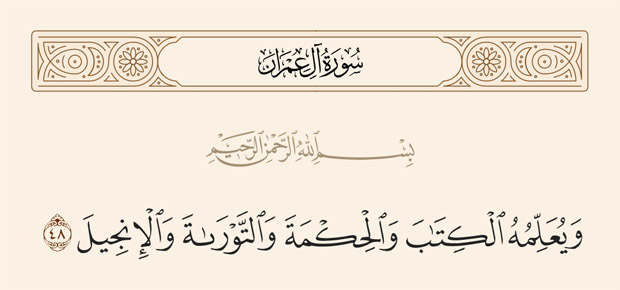 سُورَةُ آلِ عِمْرَان
بِسْمِ ٱللَّهِ ٱلرَّحْمَٰنِ ٱلرَّحِيمِ
وَيُعَلِّمُهُ ٱلْكِتَٰبَ وَٱلْحِكْمَةَ وَٱلتَّوْرَىٰةَ وَٱلْإِنجِيلَ ٤٨